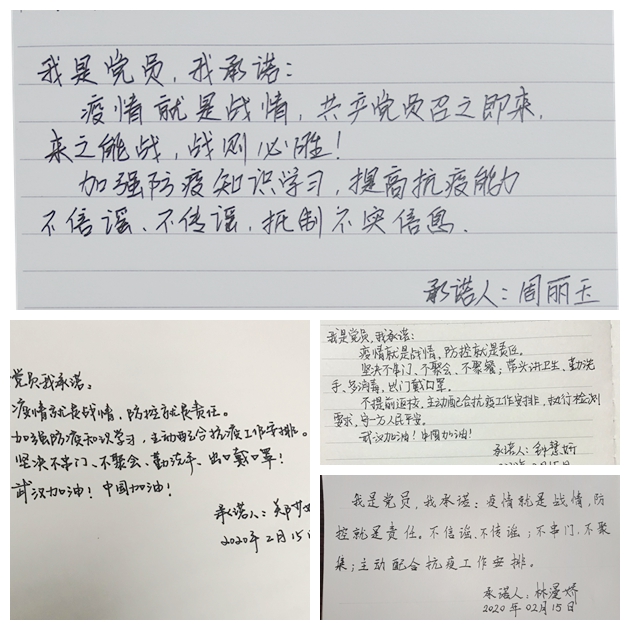 我是党员，我承诺：
疫情就是战情，共产党员召之即来，
来之能战，战则必胜！
加强防疫知识学习，提高抗疫能力
不信谣、不传谣，抵制不实信息．
承诺人：周丽玉
党员我承诺：
疫情就是战情，防控就是责任。
加强防疫知识学习，主动配合抗疫工作安排。
坚决不串门、不聚会、勤洗手、出门戴口罩！
武汉加油！中国加油！
承诺人：
2020年2月15
我是党员，我承诺：
疫情就是战情，防控就是责任。
坚决不串门、不聚会、不聚餐；带头讲卫生、勤洗
手、多消毒、出门戴口罩。
不提前返校、主动配合抗疫工作安排，执行检测
要求，守一方人民平安。
武汉加油！中国加油！
承诺人：慧妍
2020年2月15日
我是党员，我承诺：疫情就是战情，防
控就是责任。不信谣、不传谣；不串门、不聚
集；主动配合抗疫工作安排。
承诺人：林漫娇
2020年02月15日